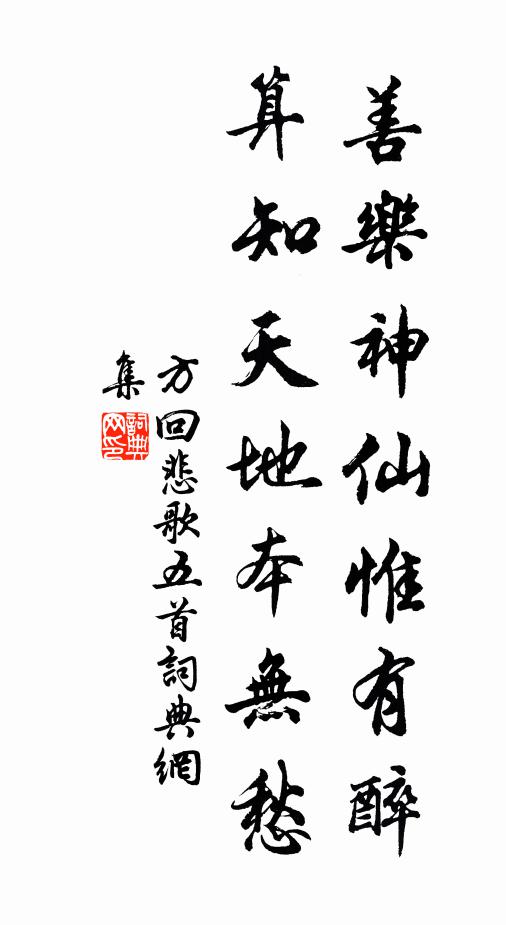 善樂神仙惟有醉
算知天地本無愁
方回悲歌五首詞典網
集
詞典網印